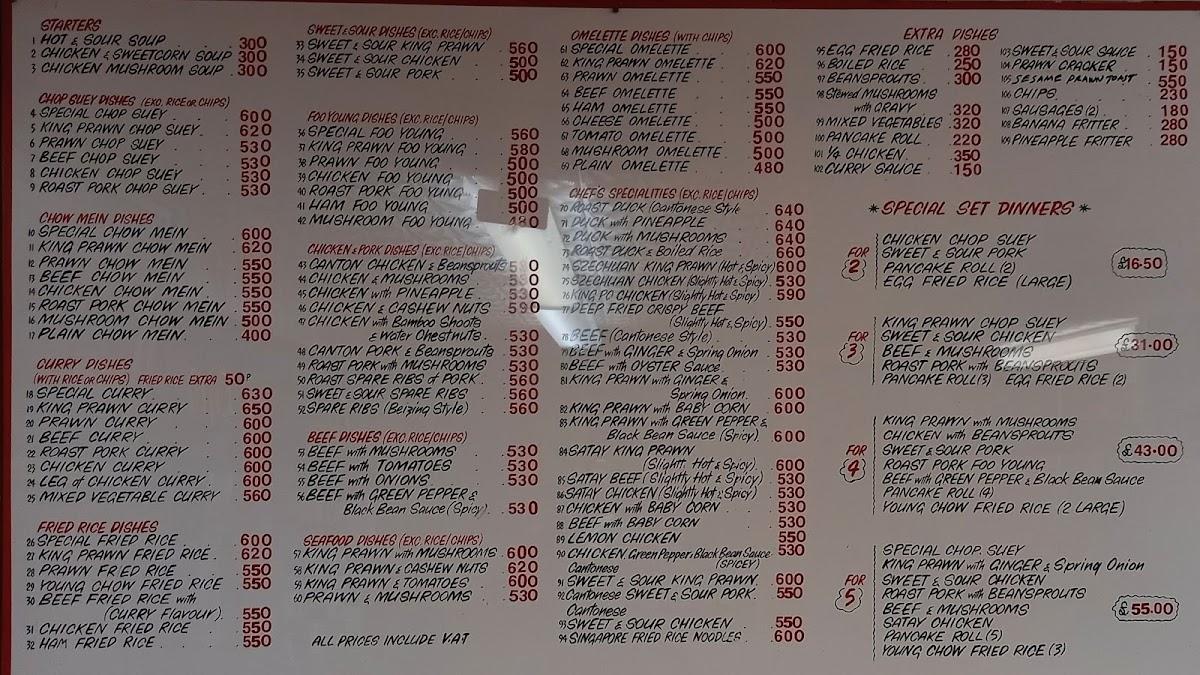 STARTERS
1 HOT & SOUR SOUP 300
2 CHICKEN & SWEETCORN SOUP 300
3 CHICKEN MUSHROOM SOUP 300
CHOP SUEY DISHES (EXC. RICE OR CHIPS)
4 SPECIAL CHOP SUEY 600
5 KING PRAWN CHOP SUEY 620
6 PRAWN CHOP SUEY 530
7 BEEF CHOP SUEY 530
8 CHICKEN CHOP SUEY 530
9 ROAST PORK CHOP SUEY 530
CHOW MEIN DISHES
10 SPECIAL CHOW MEIN 600
11 KING PRAWN CHOW MEIN 620
12 PRAWN CHOW MEIN 550
13 BEEF CHOW MEIN 550
14 CHICKEN CHOW MEIN 550
15 ROAST PORK CHOW MEIN 550
16 MUSHROOM CHOW MEIN 500
17 PLAIN CHOW MEIN 400
CURRY DISHES
(WITH RICE OR CHIPS) FRIED RICE EXTRA 50P
18 SPECIAL CURRY 630
19 KING PRAWN CURRY 650
20 PRAWN CURRY 600
21 BEEF CURRY 600
22 ROAST PORK CURRY 600
23 CHICKEN CURRY 600
24 LEG of CHICKEN CURRY 600
25 MIXED VEGETABLE CURRY 560
FRIED RICE DISHES
26 SPECIAL FRIED RICE 600
27 KING PRAWN FRIED RICE 620
28 PRAWN FRIED RICE 550
29 YOUNG CHOW FRIED RICE 550
30 BEEF FRIED RICE with
(CURRY Flavour) 550
31 CHICKEN FRIED RICE 550
32 HAM FRIED RICE 550
SWEET & SOUR DISHES (EXC. RICE/CHIPS)
33 SWEET & SOUR KING PRAWN 560
34 SWEET & SOUR CHICKEN 500
35 SWEET & SOUR PORK 500
FOO YOUNG DISHES (EXC. RICE/CHIPS)
36 SPECIAL FOO YOUNG 560
37 KING PRAWN FOO YOUNG 580
38 PRAWN FOO YOUNG 500
39 CHICKEN FOO YOUNG 500
40 ROAST PORK FOO YUNG 500
41 HAM FOO YOUNG 500
42 MUSHROOM FOO YOUNG 480
CHICKEN & PORK DISHES (EXC RICE/CHIPS)
43 CANTON CHICKEN & Beansprouts
44 CHICKEN & MUSHROOMS 530
45 CHICKEN with PINEAPPLE 530
46 CHICKEN & CASHEW NUTS 590
47 CHICKEN with Bamboo Shoots
& Water Chestnuts 530
48 CANTON PORK & Beansprouts 530
49 ROAST PORK with MUSHROOMS 530
50 ROAST SPARE RIBS of PORK 560
51 SWEET & SOUR SPARE RIBS 560
52 SPARE RIBS (Beizing Style) 560
BEEF DISHES (EXC. RICE/CHIPS)
53 BEEF with MUSHROOMS 530
54 BEEF with TOMATOES 530
55 BEEF with ONIONS 530
56 BEEF with GREEN PEPPER &
Black Bean Sauce (Spicy) 530
SEAFOOD DISHES (EXC. RICE/CHIPS)
57 KING PRAWN with MUSHROOMS 600
58 KING PRAWN & CASHEW NUTS 620
59 KING PRAWN & TOMATOES 600
60 PRAWN & MUSHROOMS 530
ALL PRICES INCLUDE V.A.T
OMELETTE DISHES (WITH CHIPS)
61 SPECIAL OMELETTE 600
62 KING PRAWN OMELETTE 620
63 PRAWN OMELETTE 550
64 BEEF OMELETTE 550
65 HAM OMELETTE 550
66 CHEESE OMELETTE 500
67 TOMATO OMELETTE 500
68 MUSHROOM OMELETTE 500
69 PLAIN OMELETTE 480
CHEF'S SPECIALITIES (EXC. RICE/CHIPS)
70 ROAST DUCK (Cantonese Style 640
71 DUCK with PINEAPPLE 640
72 DUCK with MUSHROOMS 640
73 ROAST DUCK & Boiled Rice 660
74 SZECHUAN KING PRAWN (Hot & Spicy) 600
75 SZECHUAN CHICKEN (Slightly Hot & Spicy) 530
76 KING PO CHICKEN (Slightly Hot & Spicy) 590
77 DEEP FRIED CRISPY BEEF
(Slightly Hot & Spicy) 550
78 BEEF (Cantonese Style) 530
79 BEEF with GINGER & Spring Onion 530
80 BEEF with OYSTER Sauce 530
81 KING PRAWN with GINGER &
Spring Onion 600
82 KING PRAWN with BABY CORN 600
83 KING PRAWN with GREEN PEPPER &
Black Bean Sauce (Spicy) 600
84 SATAY KING PRAWN
(Slightt Hot & Spicy) 600
85 SATAY BEEF (Slightly Hot & Spicy) 530
86 SATAY CHICKEN (Slightly Hot & Spicy) 530
87 CHICKEN with BABY CORN 530
88 BEEF with BABY CORN 530
89 LEMON CHICKEN 550
90 CHICKEN, Green Pepper & Black Bean Sauce 530
(SPICEY)
Cantonese
91 SWEET & SOUR KING PRAWN 600
92 Cantonese SWEET & SOUR PORK 550
Cantonese
93 SWEET & SOUR CHICKEN 550
94 SINGAPORE FRIED RICE NOODLES 600
EXTRA DISHES
95 EGG FRIED RICE 280
96 BOILED RICE 250
97 BEANSPROUTS 300
98 Stewed MUSHROOMS
with GRAVY 320
99 MIXED VEGETABLES 320
100 PANCAKE ROLL 220
101 1/4 CHICKEN 350
102 CURRY SAUCE 150
103 SWEET & SOUR SAUCE 150
104 PRAWN CRACKER 150
105 SESAME PRAWN TOAST 550
106 CHIPS 230
107 SAUSAGES (2) 180
108 BANANA FRITTER 280
109 PINEAPPLE FRITTER 280
*SPECIAL SET DINNERS*
FOR 2
CHICKEN CHOP SUEY
SWEET & SOUR PORK
PANCAKE ROLL (2)
EGG FRIED RICE (LARGE)
£16·50
FOR 3
KING PRAWN CHOP SUEY
SWEET & SOUR CHICKEN
BEEF & MUSHROOMS
ROAST PORK with BEANSPROUTS
PANCAKE ROLL(3) EGG FRIED RICE (2)
£31·00
FOR 4
KING PRAWN with MUSHROOMS
CHICKEN with BEANSPROUTS
SWEET & SOUR PORK
ROAST PORK FOO YOUNG
BEEF with GREEN PEPPER & Black Bean Sauce
PANCAKE ROLL (4)
YOUNG CHOW FRIED RICE (2 LARGE)
£43·00
FOR 5
SPECIAL CHOP SUEY
KING PRAWN with GINGER & Spring Onion
SWEET & SOUR CHICKEN
ROAST PORK with BEANSPROUTS
BEEF & MUSHROOMS
SATAY CHICKEN
PANCAKE ROLL (5)
YOUNG CHOW FRIED RICE (3)
£55.00